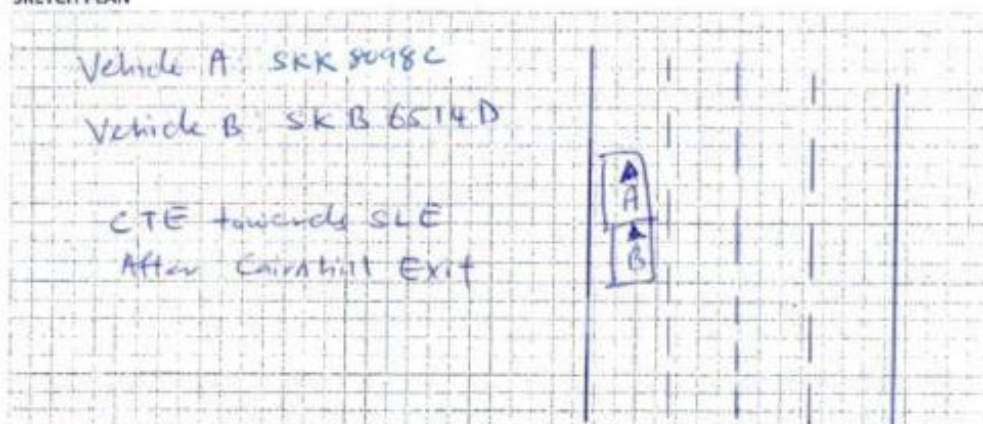 SKETCH PLAN
Vehicle A: SKK 8098C
Vehicle B SKB 6514D
CTE towards SLE
After Cairnhill Exit
A
B